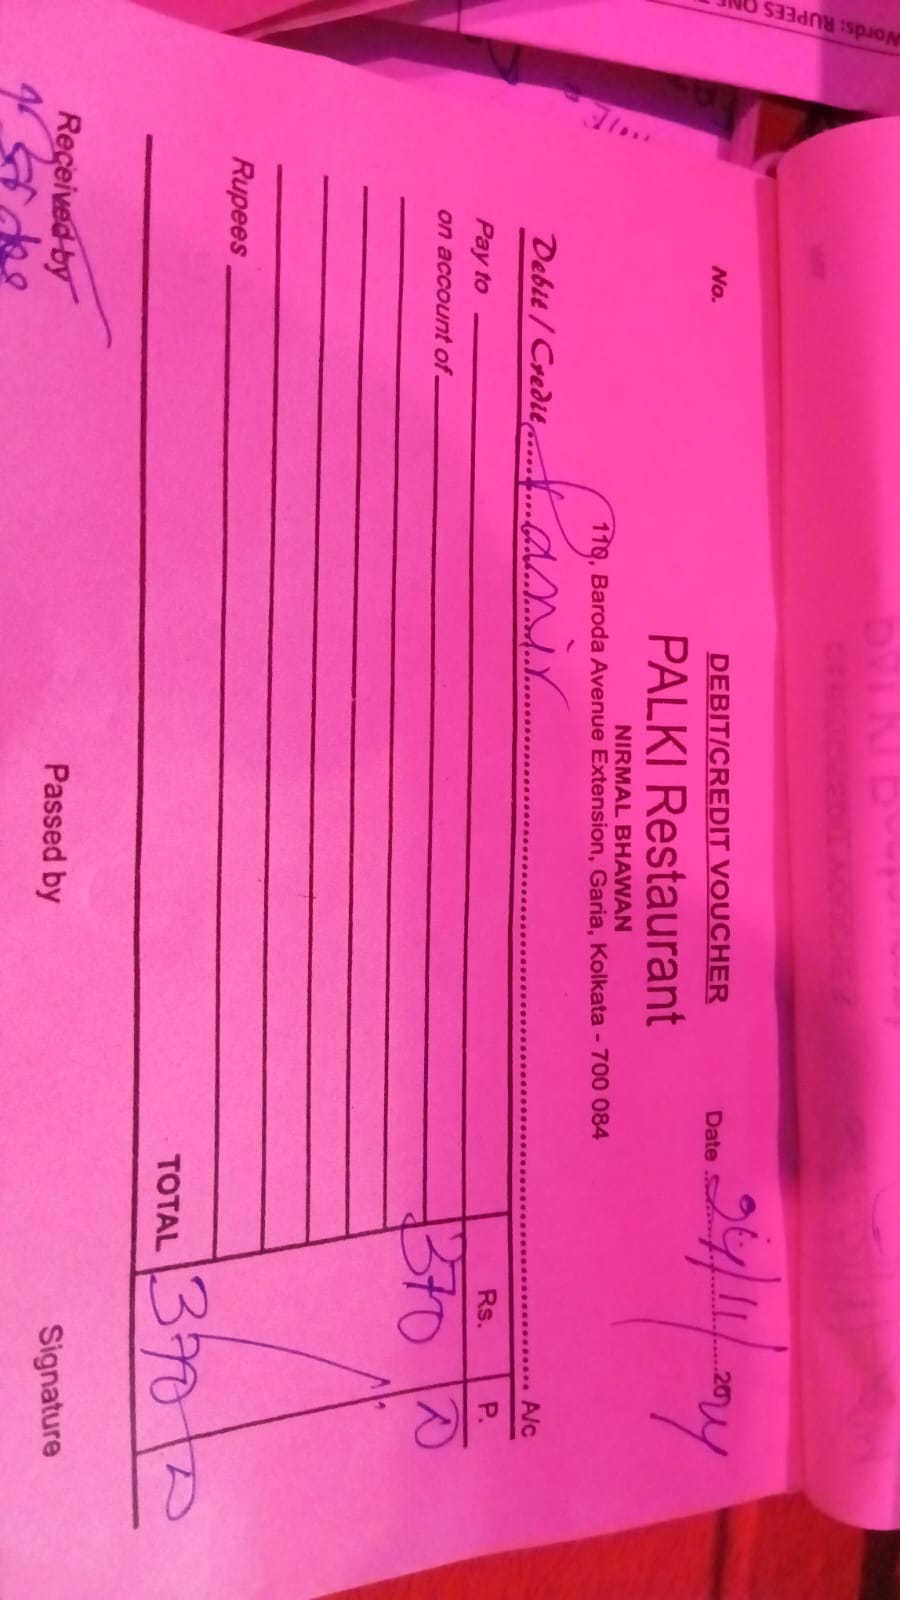 Words: RUPEES ONE
DEBIT/CREDIT VOUCHER
No.
Date 20
PALKI Restaurant
NIRMAL BHAWAN
110, Baroda Avenue Extension, Garia, Kolkata - 700 084
Debit / Credit A/c
Pay to Rs. P.
on account of 370
Rupees
TOTAL 370
Received by Passed by Signature